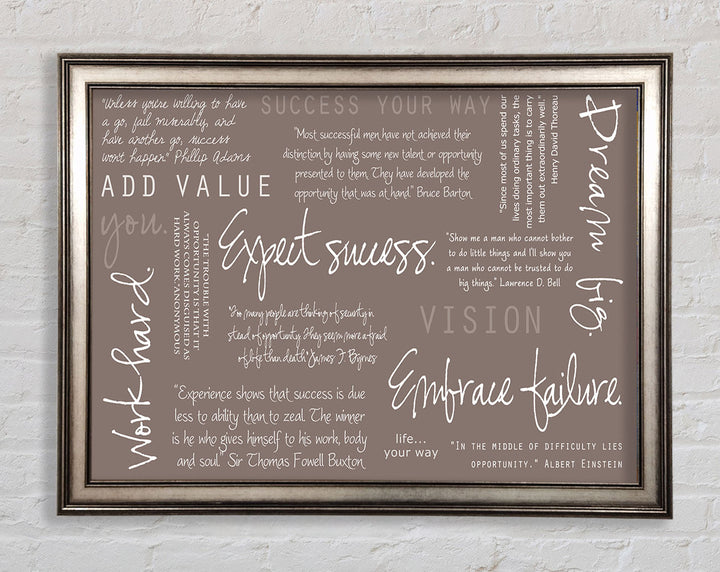 "Unless you're willing to have
a go, fail miserably, and
have another go, success
won't happen." Phillip Adams
SUCCESS YOUR WAY
"Most successful men have not achieved their
distinction by having some new talent or opportunity
presented to them. They have developed the
opportunity that was at hand." Bruce Barton
"Since most of us spend our
lives doing ordinary tasks, the
most important thing is to carry
them out extraordinarily well."
Henry David Thoreau
Dream big.
ADD VALUE
you.
"THE TROUBLE WITH
OPPORTUNITY IS THAT IT
ALWAYS COMES DISGUISED AS
HARD WORK."ANONYMOUS
Expect success.
"Show me a man who cannot bother
to do little things and I'll show you
a man who cannot be trusted to do
big things." Lawrence D. Bell
Work hard.
"Too many people are thinking of security in
stead of opportunity. They seem more afraid
of life than death." James F. Byrnes
VISION
Embrace failure.
"Experience shows that success is due
less to ability than to zeal. The winner
is he who gives himself to his work, body
and soul." Sir Thomas Fowell Buxton
life...
your way
"In the middle of difficulty lies
opportunity." Albert Einstein